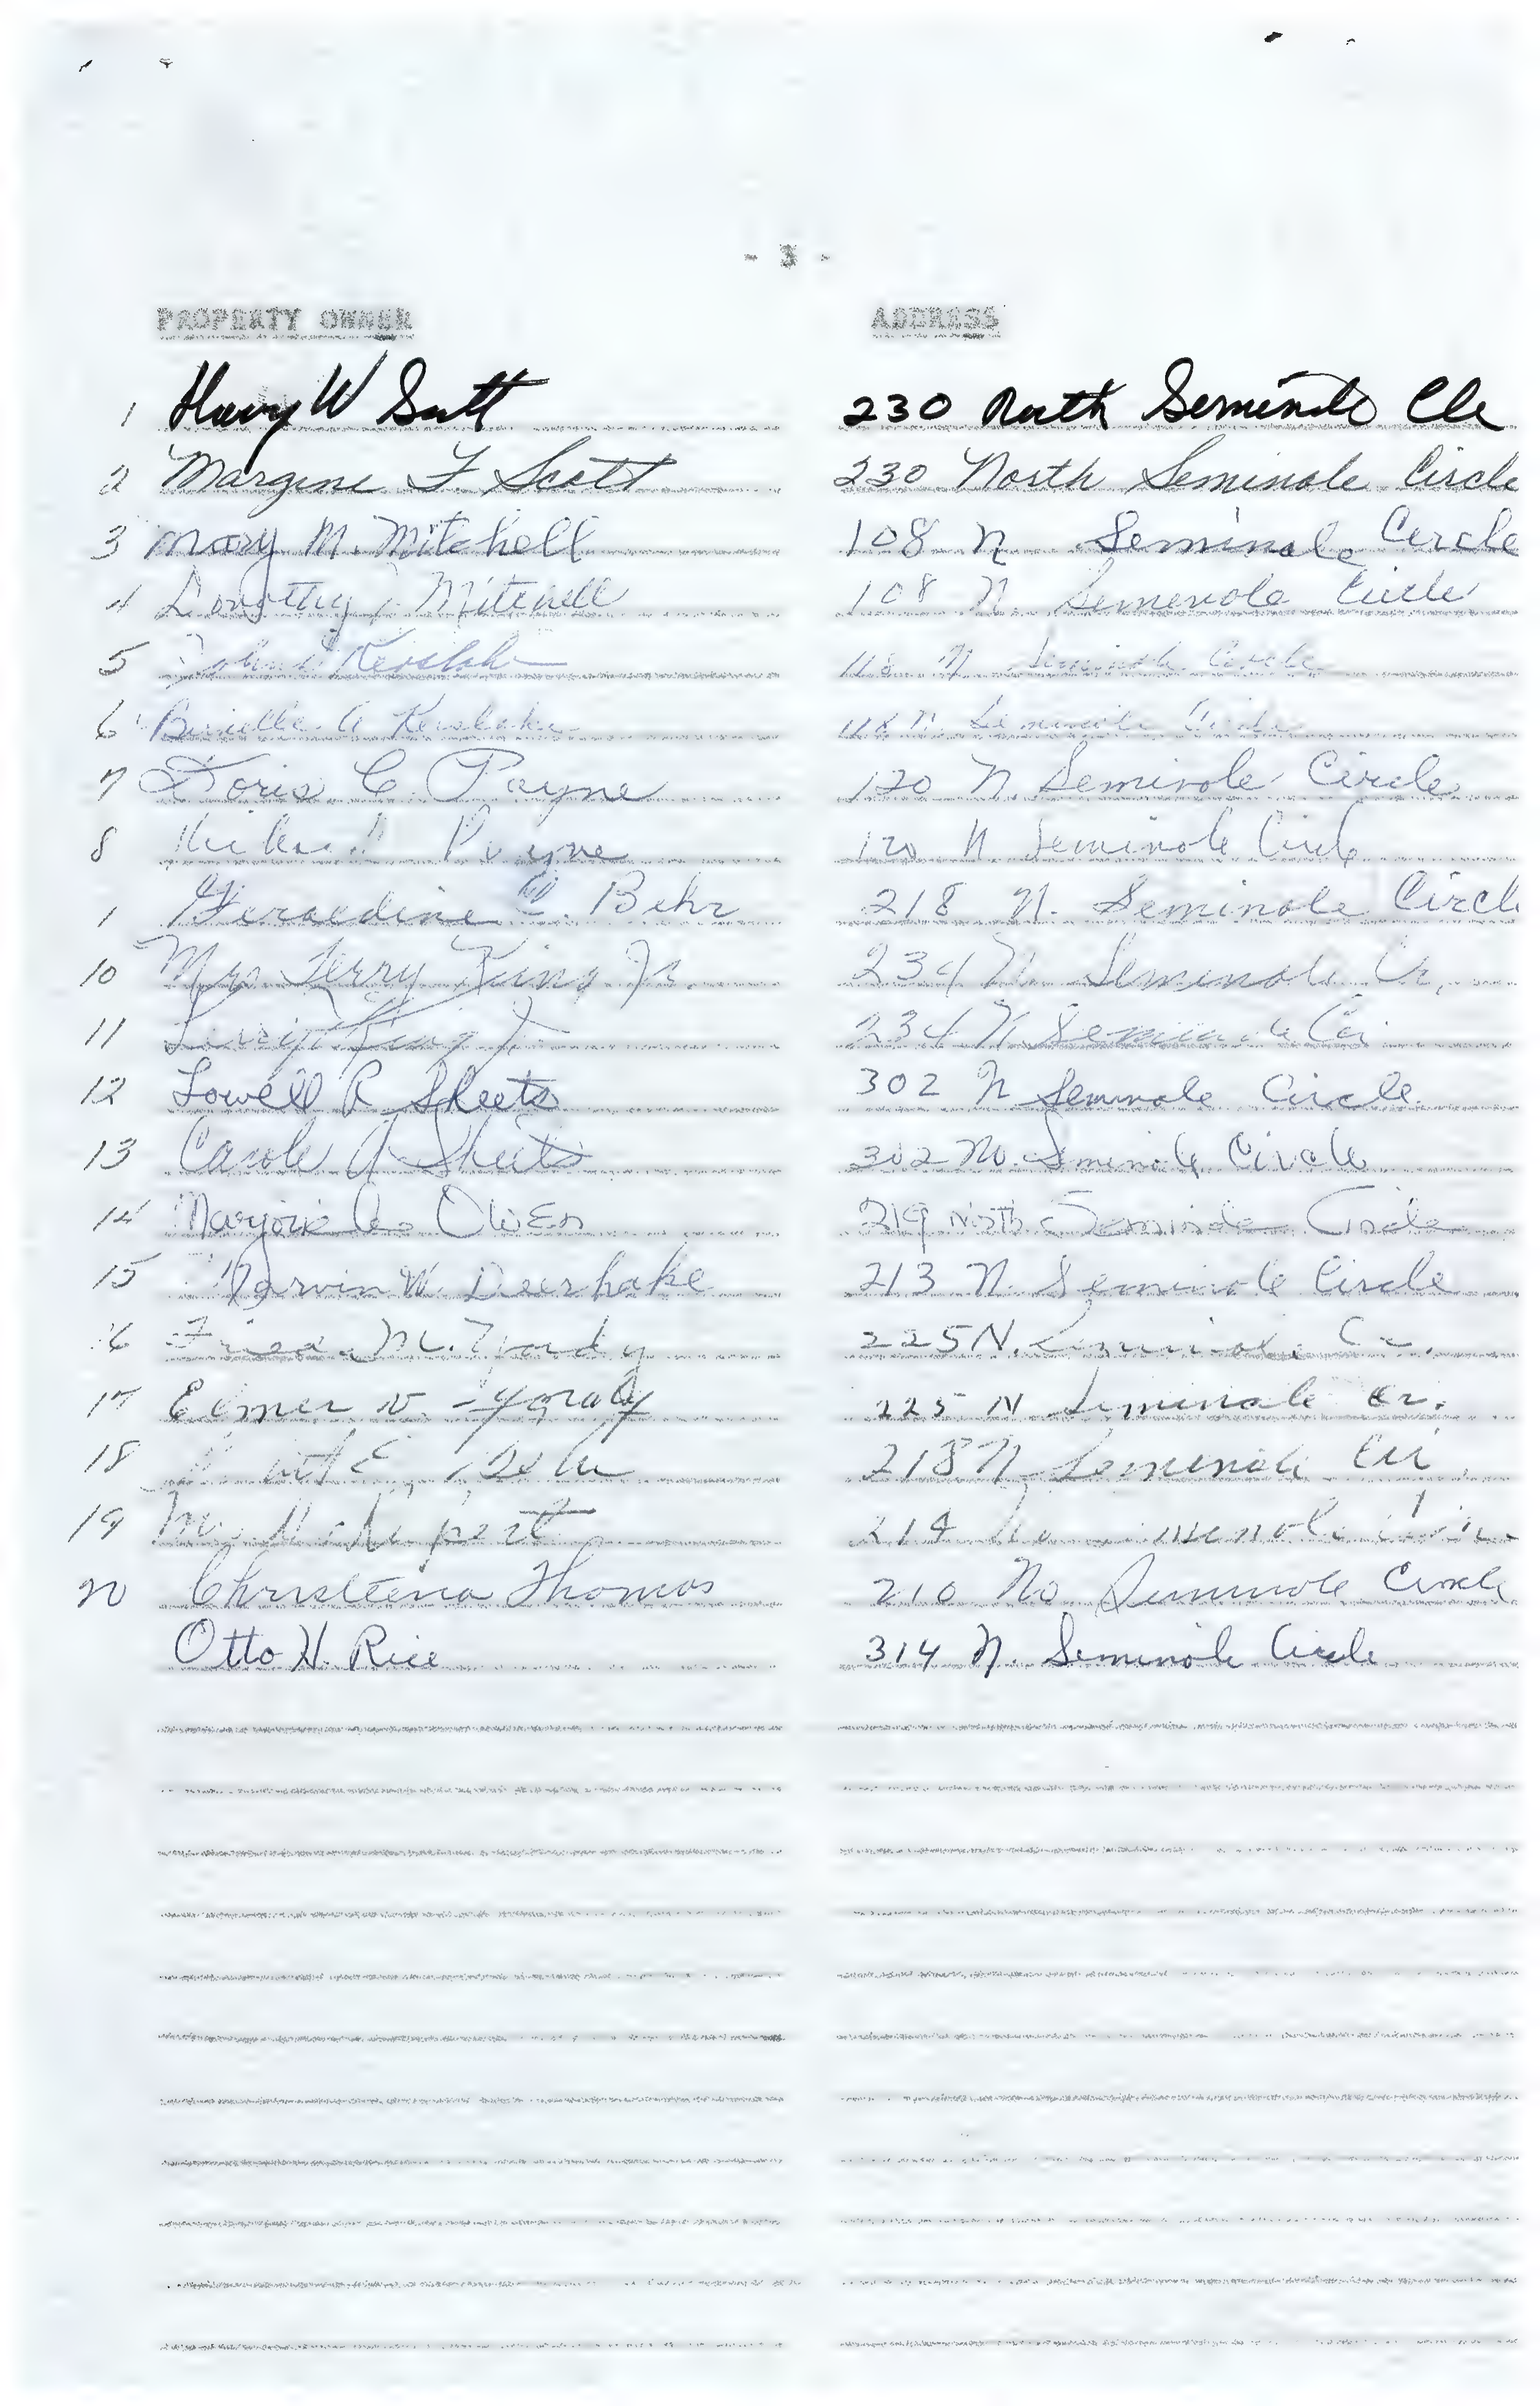 - 3 -
PROPERTY OWNER ADDRESS
1 Harry W Scott 230 North Seminole Cle
2 Margine F Scott 230 North Seminole Circle
3 Mary M. Mitchell 108 N Seminole Circle
4 Dorothy Mitchell 108 N. Seminole Circle
5 John Kerslake 118 N Seminole Circle
6 A Kerslake 118 N. Seminole Circle
7 Doris C. Payne 120 N Seminole Circle
8 Payne 120 N Seminole Circle
1 Geraldine E. Behr 218 N. Seminole Circle
10 Mrs Terry King Jr. 234 N. Seminole Cr.
11 King Jr 234 N Seminole Cir
12 Lowell R Sheets 302 N Seminole Circle
13 Carole A Sheets 302 No. Seminole Circle
14 Marjorie Owen 219 North Seminole Circle
15 Marvin W. Deerhake 213 N. Seminole Circle
16 M. 225 N. Seminole Cr.
17 Elmer 225 N Seminole Cr.
18 E. 218 N Seminole Cir
19 214 Seminole
20 Christeena Thomas 210 No Seminole Circle
Otto H. Rice 314 N. Seminole Circle